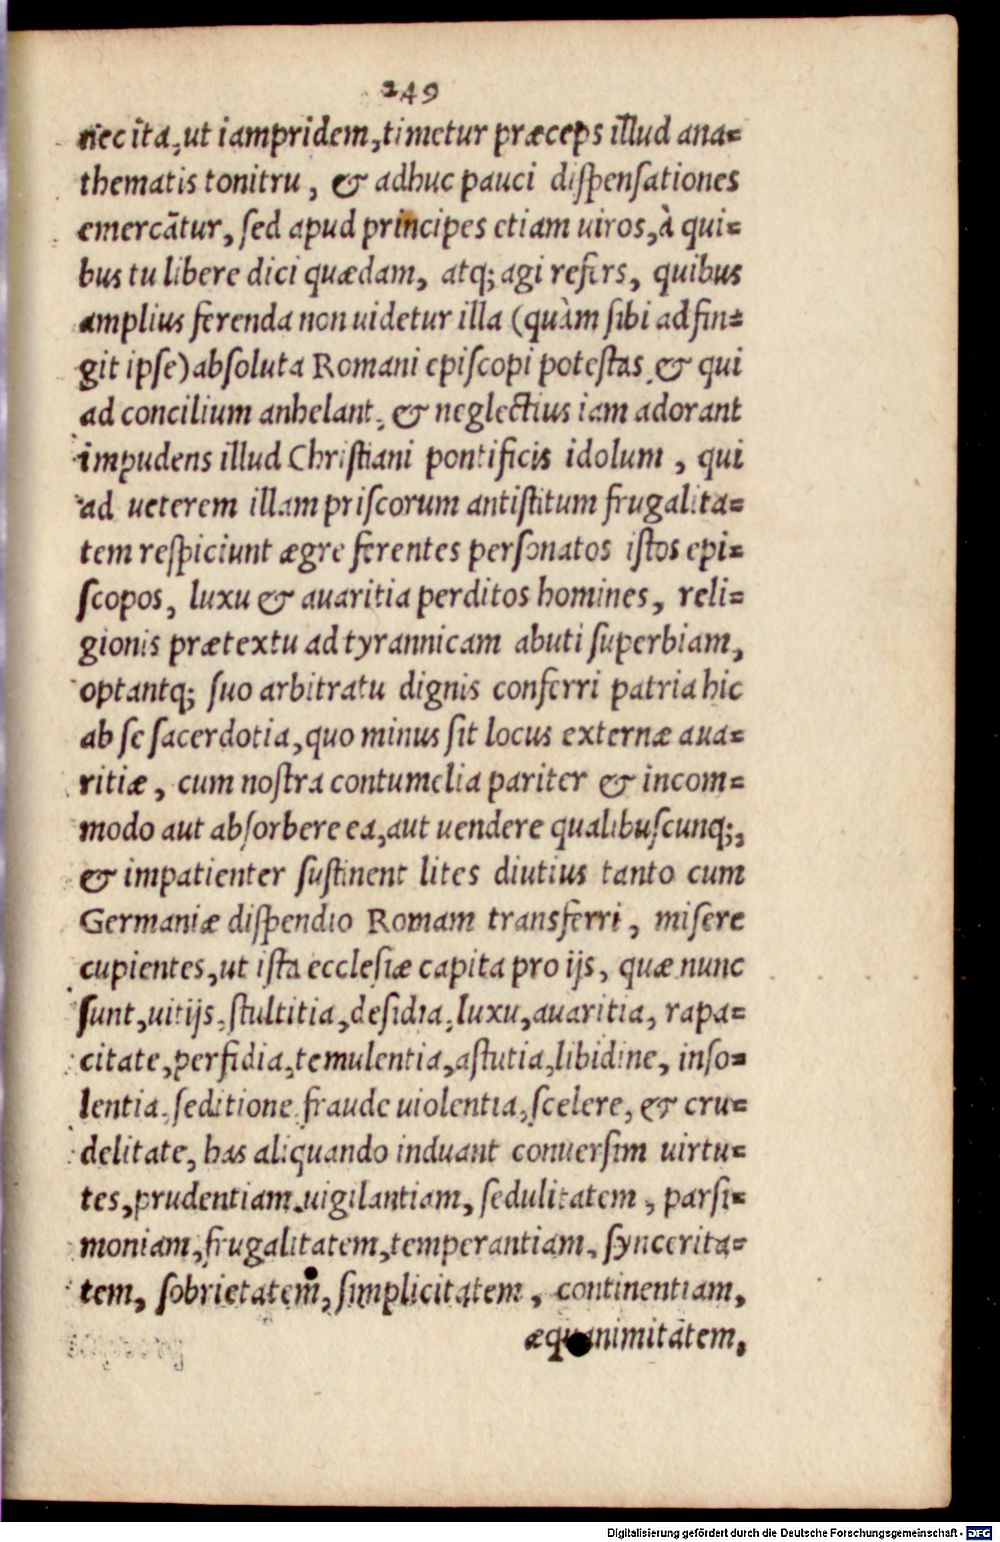 249
nec ita, ut iampridem, timetur præceps illud ana=
thematis tonitru, & adhuc pauci dispensationes
emercãtur, sed apud principes etiam uiros, à qui=
bus tu libere dici quædam, atq; agi refers, quibus
amplius ferenda non uidetur illa (quàm sibi adfin=
git ipse) absoluta Romani episcopi potestas, & qui
ad concilium anhelant, & neglectius iam adorant
impudens illud Christiani pontificis idolum, qui
ad ueterem illam priscorum antistitum frugalita=
tem respiciunt ægre ferentes personatos istos epi=
scopos, luxu & auaritia perditos homines, reli=
gionis prætextu ad tyrannicam abuti superbiam,
optantq; suo arbitratu dignis conferri patria hic
ab se sacerdotia, quo minus sit locus externæ aua=
ritiæ, cum nostra contumelia pariter & incom=
modo aut absorbere ea, aut uendere qualibuscunq;,
& impatienter sustinent lites diutius tanto cum
Germaniæ dispendio Romam transferri, misere
cupientes, ut ista ecclesiæ capita pro ijs, quæ nunc
sunt, uitijs, stultitia, desidia, luxu, auaritia, rapa=
citate, perfidia, temulentia, astutia, libidine, inso=
lentia, seditione, fraude uiolentia, scelere, & cru=
delitate, has aliquando induant conuersim uirtu=
tes, prudentiam, uigilantiam, sedulitatem, parsi=
moniam, frugalitatem, temperantiam, syncerita=
tem, sobrietatem, simplicitatem, continentiam,
æquanimitatem,
Digitalisierung gefördert durch die Deutsche Forschungsgemeinschaft - DFG